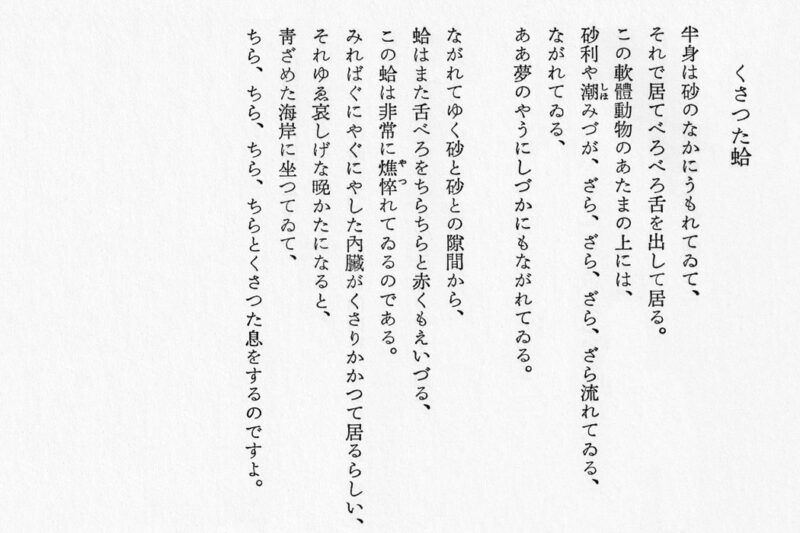 くさつた蛤
半身は砂のなかにうもれてゐて、
それで居てべろべろ舌を出して居る。
この軟體動物のあたまの上には、
砂利や潮みづが、ざら、ざら、ざら、ざら流れてゐる、
しほ
ながれてゐる、
ああ夢のやうにしづかにもながれてゐる。
ながれてゆく砂と砂との隙間から、
蛤はまた舌べろをちらちらと赤くもえいづる、
この蛤は非常に憔悴れてゐるのである。
やつ
みればぐにやぐにやした內臟がくさりかかつて居るらしい、
それゆゑ哀しげな晩かたになると、
靑ざめた海岸に坐つてゐて、
ちら、ちら、ちら、ちらとくさつた息をするのですよ。